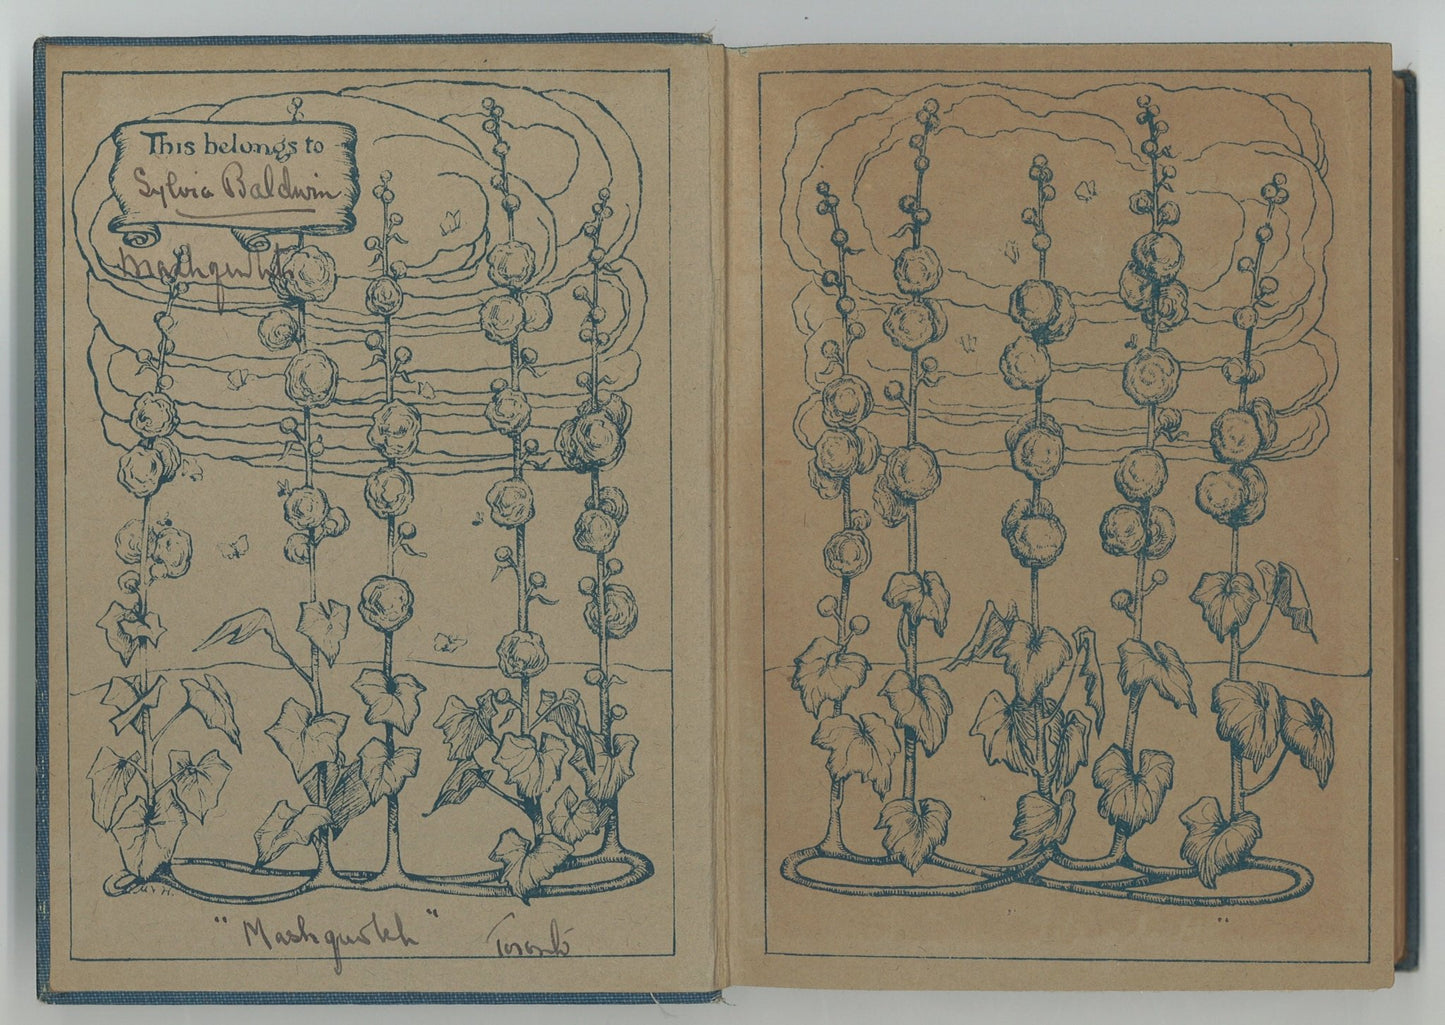 This belongs to
Sylvia Baldwin
Mashquoteh
"Mashquoteh" Toronto